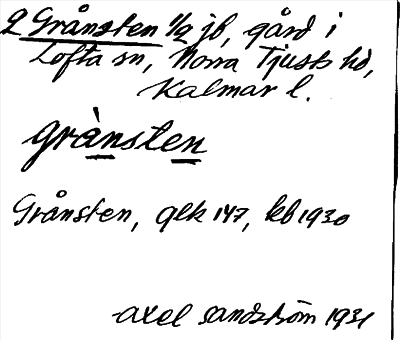 2 Grånsten 1/2 jb, gård i
Lofta sn, Norra Tjusts hd,
Kalmar l.
grànsten
Grånsten, glk 147, kb 1930
Axel Sandström 1931